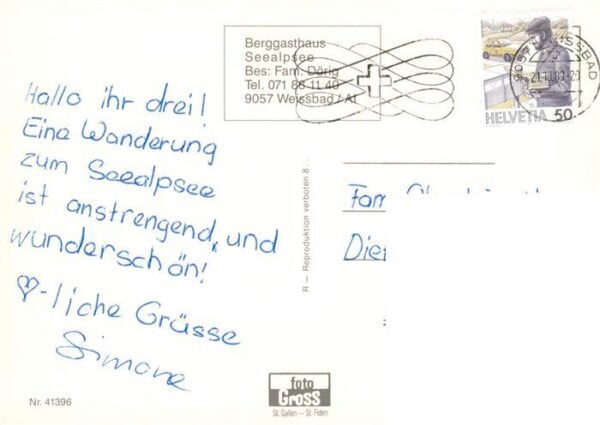 Berggasthaus
Seealpsee
Bes: Fam. Dörig
Tel. 071 88 11 40
9057 Weissbad / AI
HELVETIA 50
Hallo ihr drei!
Eine Wanderung
zum Seealpsee
ist anstrengend, und
wunderschön!
♡-liche Grüsse
Simone
R – Reproduktion verboten
Fam
foto
Gross
St. Gallen – St. Fiden
Nr. 41396